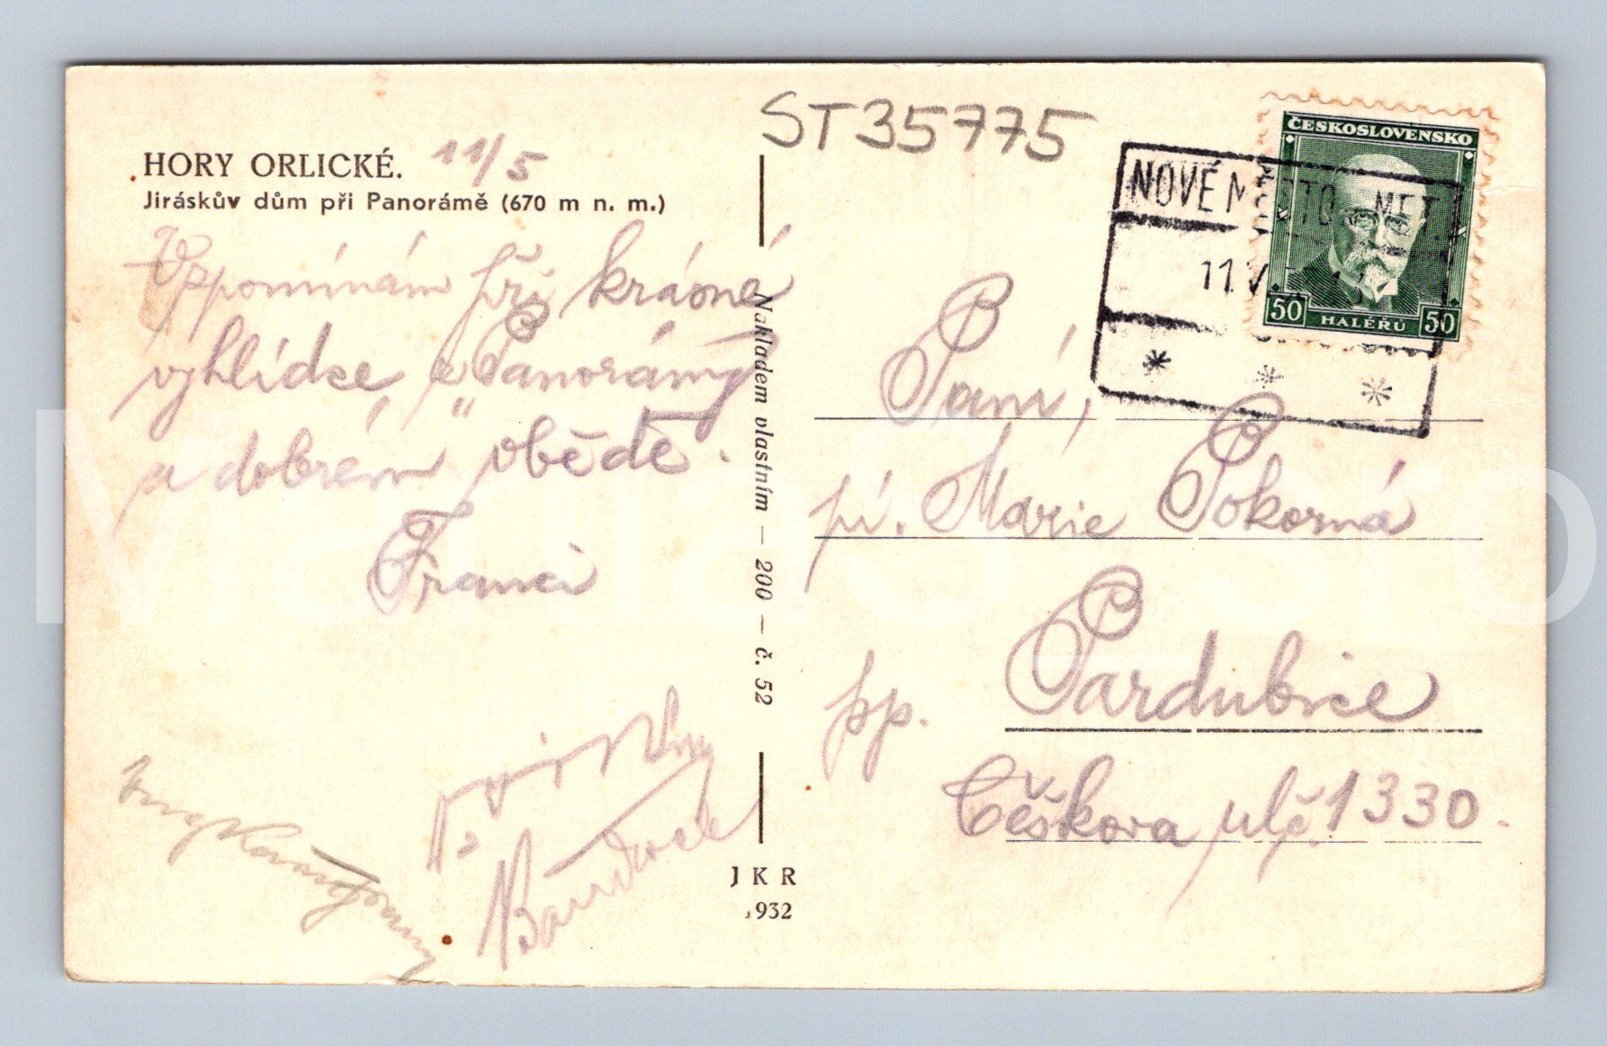 HORY ORLICKÉ. 11/5
Jiráskův dům při Panorámě (670 m n. m.)
Vzpomínám při krásné
vyhlídce "z Panorámy"
a dobrém obědě.
Franci
Nakladem vlastním — 200 — č. 52
JKR
1932
ST35775
ČESKOSLOVENSKO
50 HALÉŘŮ 50
NOVÉ MĚSTO MET
11.V
* * *
Paní,
pí. Marie Pokorná
Pardubice
pp.
Češkova ulč. 1330.